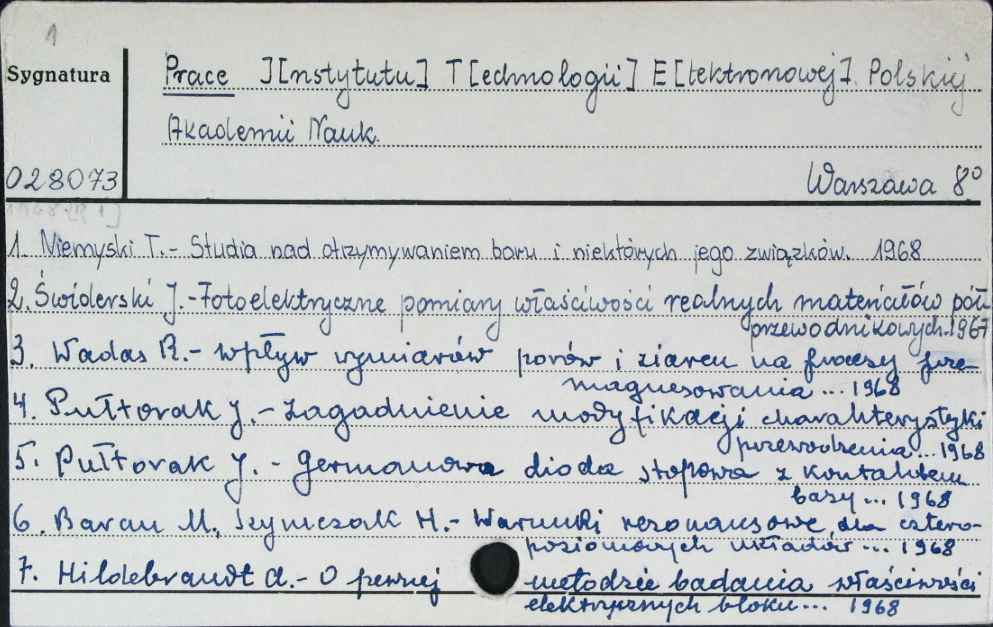 1
Sygnatura
Prace I[nstytutu] T[echnologii] E[lektronowej]. Polskiej
Akademii Nauk.
028073
Warszawa 8°
1. Niemyski T. - Studia nad otrzymywaniem boru i niektórych jego związków. 1968
2. Świderski J. - Fotoelektryczne pomiary właściwości realnych materiałów pół-
przewodnikowych. 1967
3. Wadas R. - Wpływ wymiarów porów i ziaren na procesy prze-
magnesowania ... 1968
4. Pułtorak J. - Zagadnienie modyfikacji charakterystyki
przewodzenia ... 1968
5. Pułtorak J. - Germanowa dioda stopowa z kontaktem
bazy ... 1968
6. Baran M., Szymczak H. - Warunki rezonansowe dla cztero-
poziomowych układów ... 1968
7. Hildebrandt A. - O pewnej metodzie badania właściwości
elektrycznych bloku ... 1968